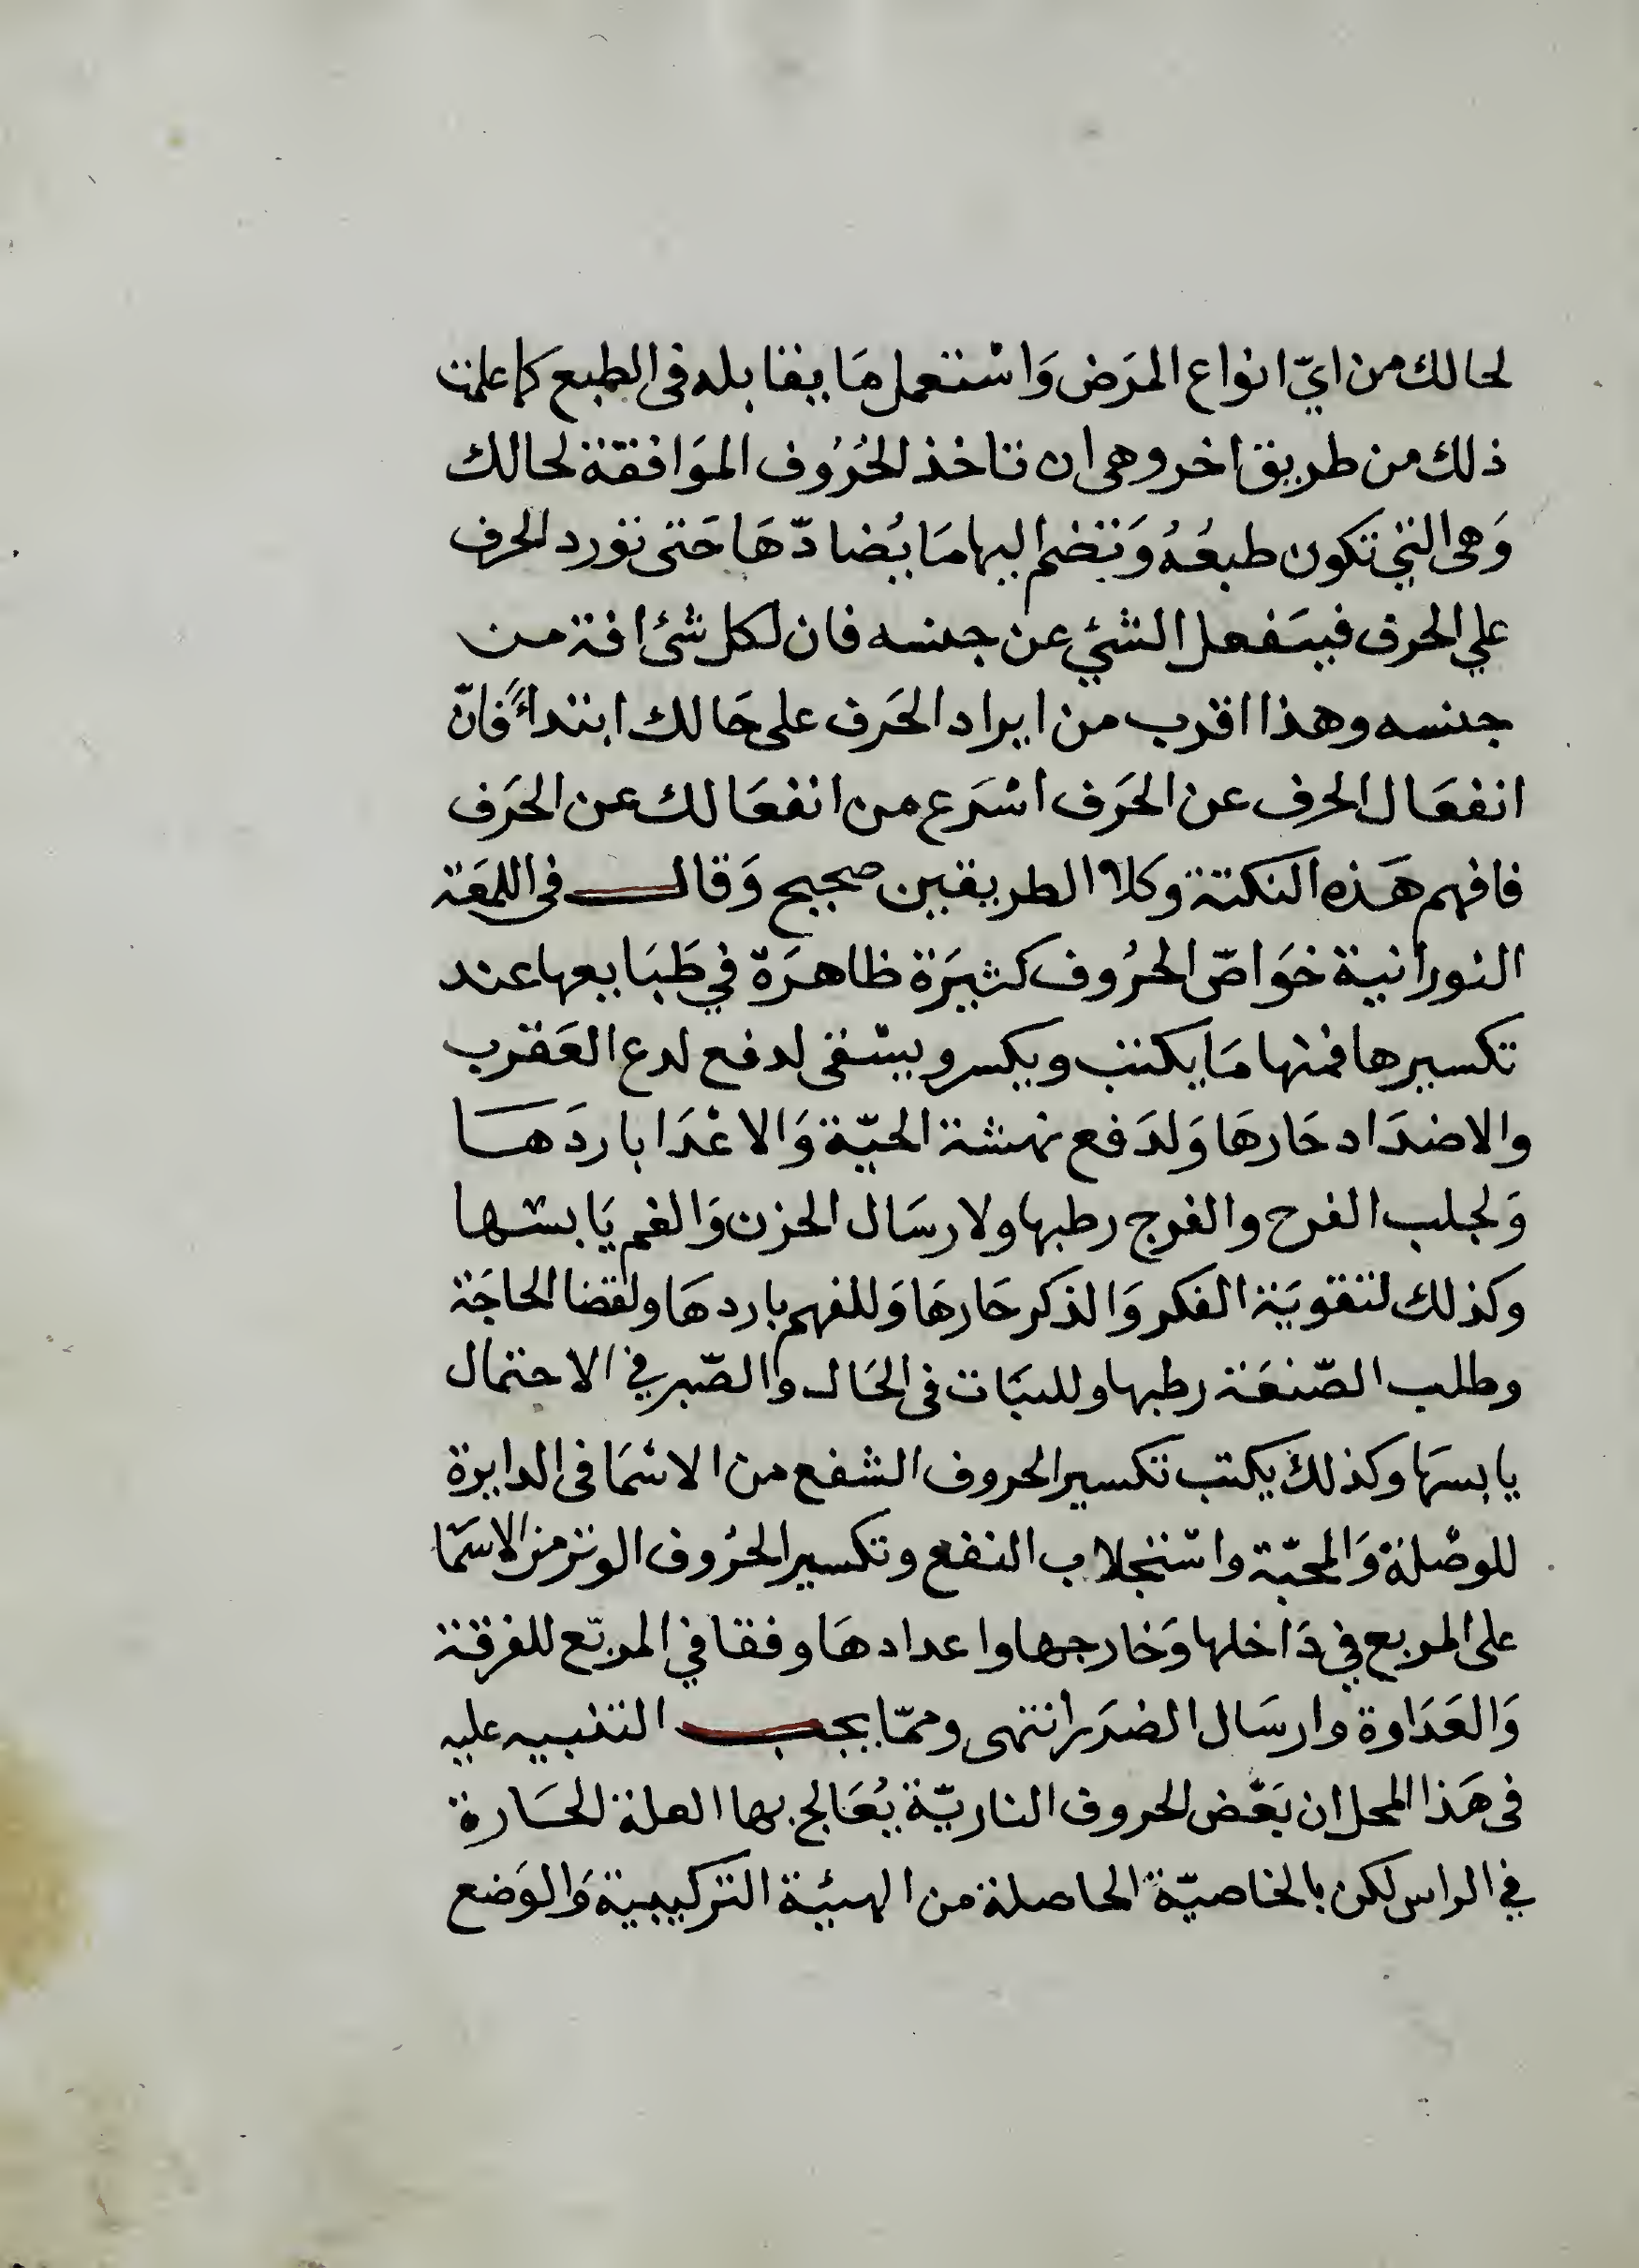 لحالك من ايّ انواع المرَض وَاستعمل مَا يقابله فى الطبع كما علمت
ذلك من طريق اخر وهى ان تاخذ الحُرُوف الموَافقة لحالك
وَهى التي تكون طبعُهُ وَتضم اليها مَا يُضادّهَا حَتى تورد الحرف
علي الحرف فينفعل الشئ عن جنسه فان لكل شئ افة من
جنسه وهذا اقرب من ايراد الحَرف على حَالك ابتداءً فانّ
انفعَال الحرف عن الحَرف اسرَع من انفعَالك عن الحَرف
فافهم هَذه النكتة وكلا الطريقين صحيح وَقال فى اللمعَة
النورانية خوَاصّ الحرُوف كثيرَة ظاهرَة في طبَايعها عند
تكسيرها فمنها مَا يكتب ويكسر ويسقى لدفع لدع العَقرب
والاضدَاد حَارهَا وَلدَفع نهشة الحيّة وَالاعْدَا باردَهَا
وَلجلب الفرح والفرج رطبها ولارسَال الحزن وَالغم يَابسها
وكذلك لتقويَة الفكر وَالذكر حَارهَا وَللفهم باردهَا ولقضا الحاجَة
وطلب الصّنعَة رطبها وللثبَات فى الحَال والصّبر في الاحتمال
يابسهَا وكذلك يكتب تكسير الحروف الشفع من الاسمَا فى الدايرة
للوصْلة وَالمحبّة واستجلاب النفع وتكسير الحرُوف الوتر من الاسمَا
على المربع في دَاخلها وَخارجها واعدادهَا وفقا في المربّع للفرقة
وَالعَدَاوة وارسَال الضرَر انتهى وممّا يجب التنبيه عليه
فى هَذا المحل ان بَعْض الحروف الناريّة يُعَالج بها العلة الحَارة
في الراس لكن بالخاصيّة الحاصلة من الهيئة التركيبية وَالوَضع